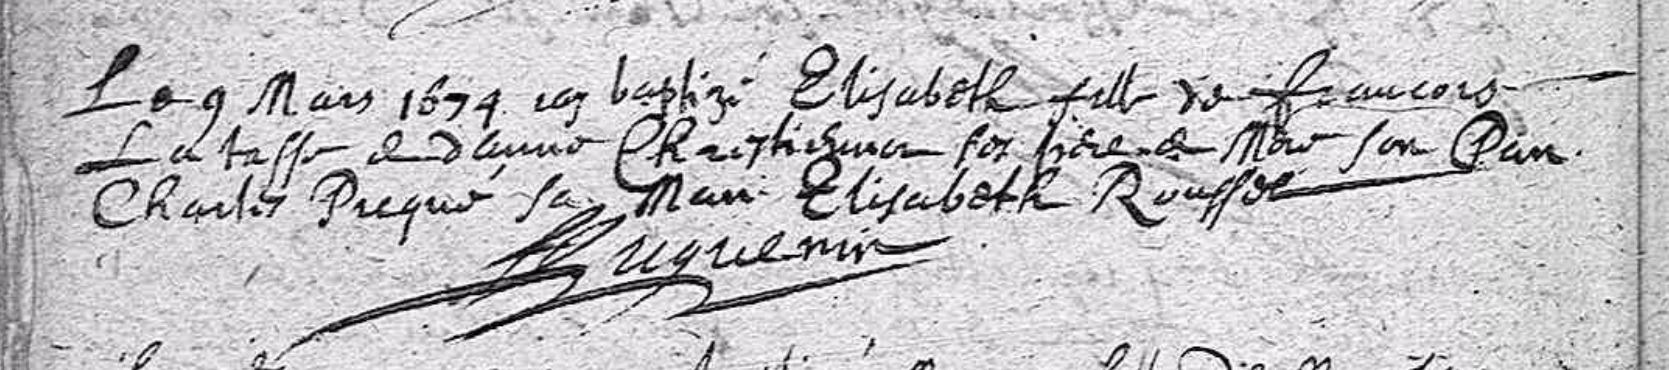 Le 9 Mars 1674 iay baptizé Elisabeth fille de francois
La tasse e d'anne Chrestienne ses Pere e Mere son Parr.
Charles Prequé sa Marr. Elisabeth Roussel
Huguenin